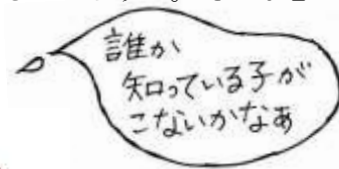 誰か
知っている子が
こないかなあ